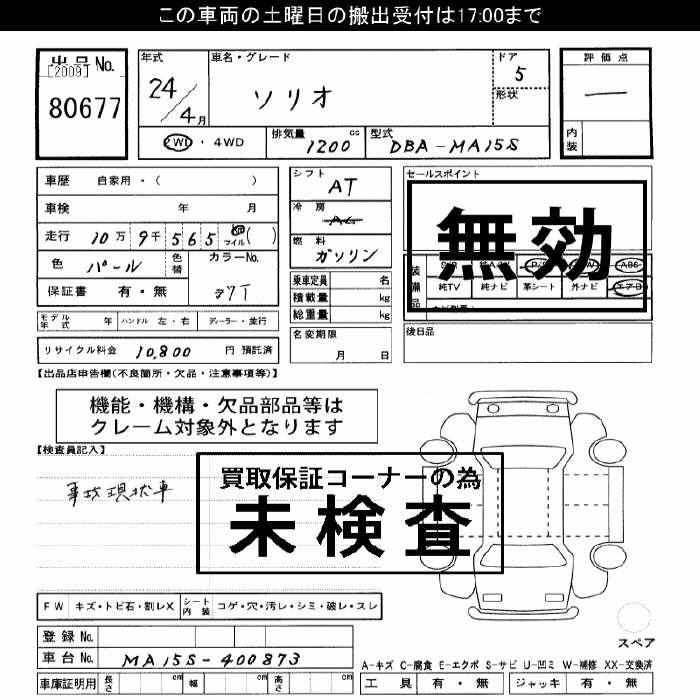 この車両の土曜日の搬出受付は17:00まで
出品No.
[2009]
80677
年式
24/4月
車名・グレード
ソリオ
ドア
5
形状
評価点
—
内装
2WD・4WD
排気量
1200
cc
型式
DBA-MA15S
車歴 自家用・( )
車検 年 月
走行 10万 9千 5 6 5 km マイル ( )
色 パール
色替
カラーNo.
Z7T
保証書 有・無
シフト
AT
冷房
AC
燃料
ガソリン
乗車定員 名
積載量 kg
総重量 kg
セールスポイント
無効
装備品
P/S
ABS
純TV 純ナビ 革シート 外ナビ エアB
モデル年式 年 ハンドル 左・右 ディーラー・並行
リサイクル料金 10,800 円 預託済
名変期限
月 日
後日品
【出品店申告欄(不良箇所・欠品・注意事項等)】
機能・機構・欠品部品等は
クレーム対象外となります
【検査員記入】
買取保証コーナーの為
未検査
事故現状車
FW キズ・トビ石・割レX
シート内装 コゲ・穴・汚レ・シミ・破レ・スレ
登録No.
車台No. MA15S-400873
スペア
A-キズ C-腐食 E-エクボ S-サビ U-凹ミ W-補修 XX-交換済
車庫証明用 長さ cm 幅 cm 高さ cm
工具 有・無 ジャッキ 有・無